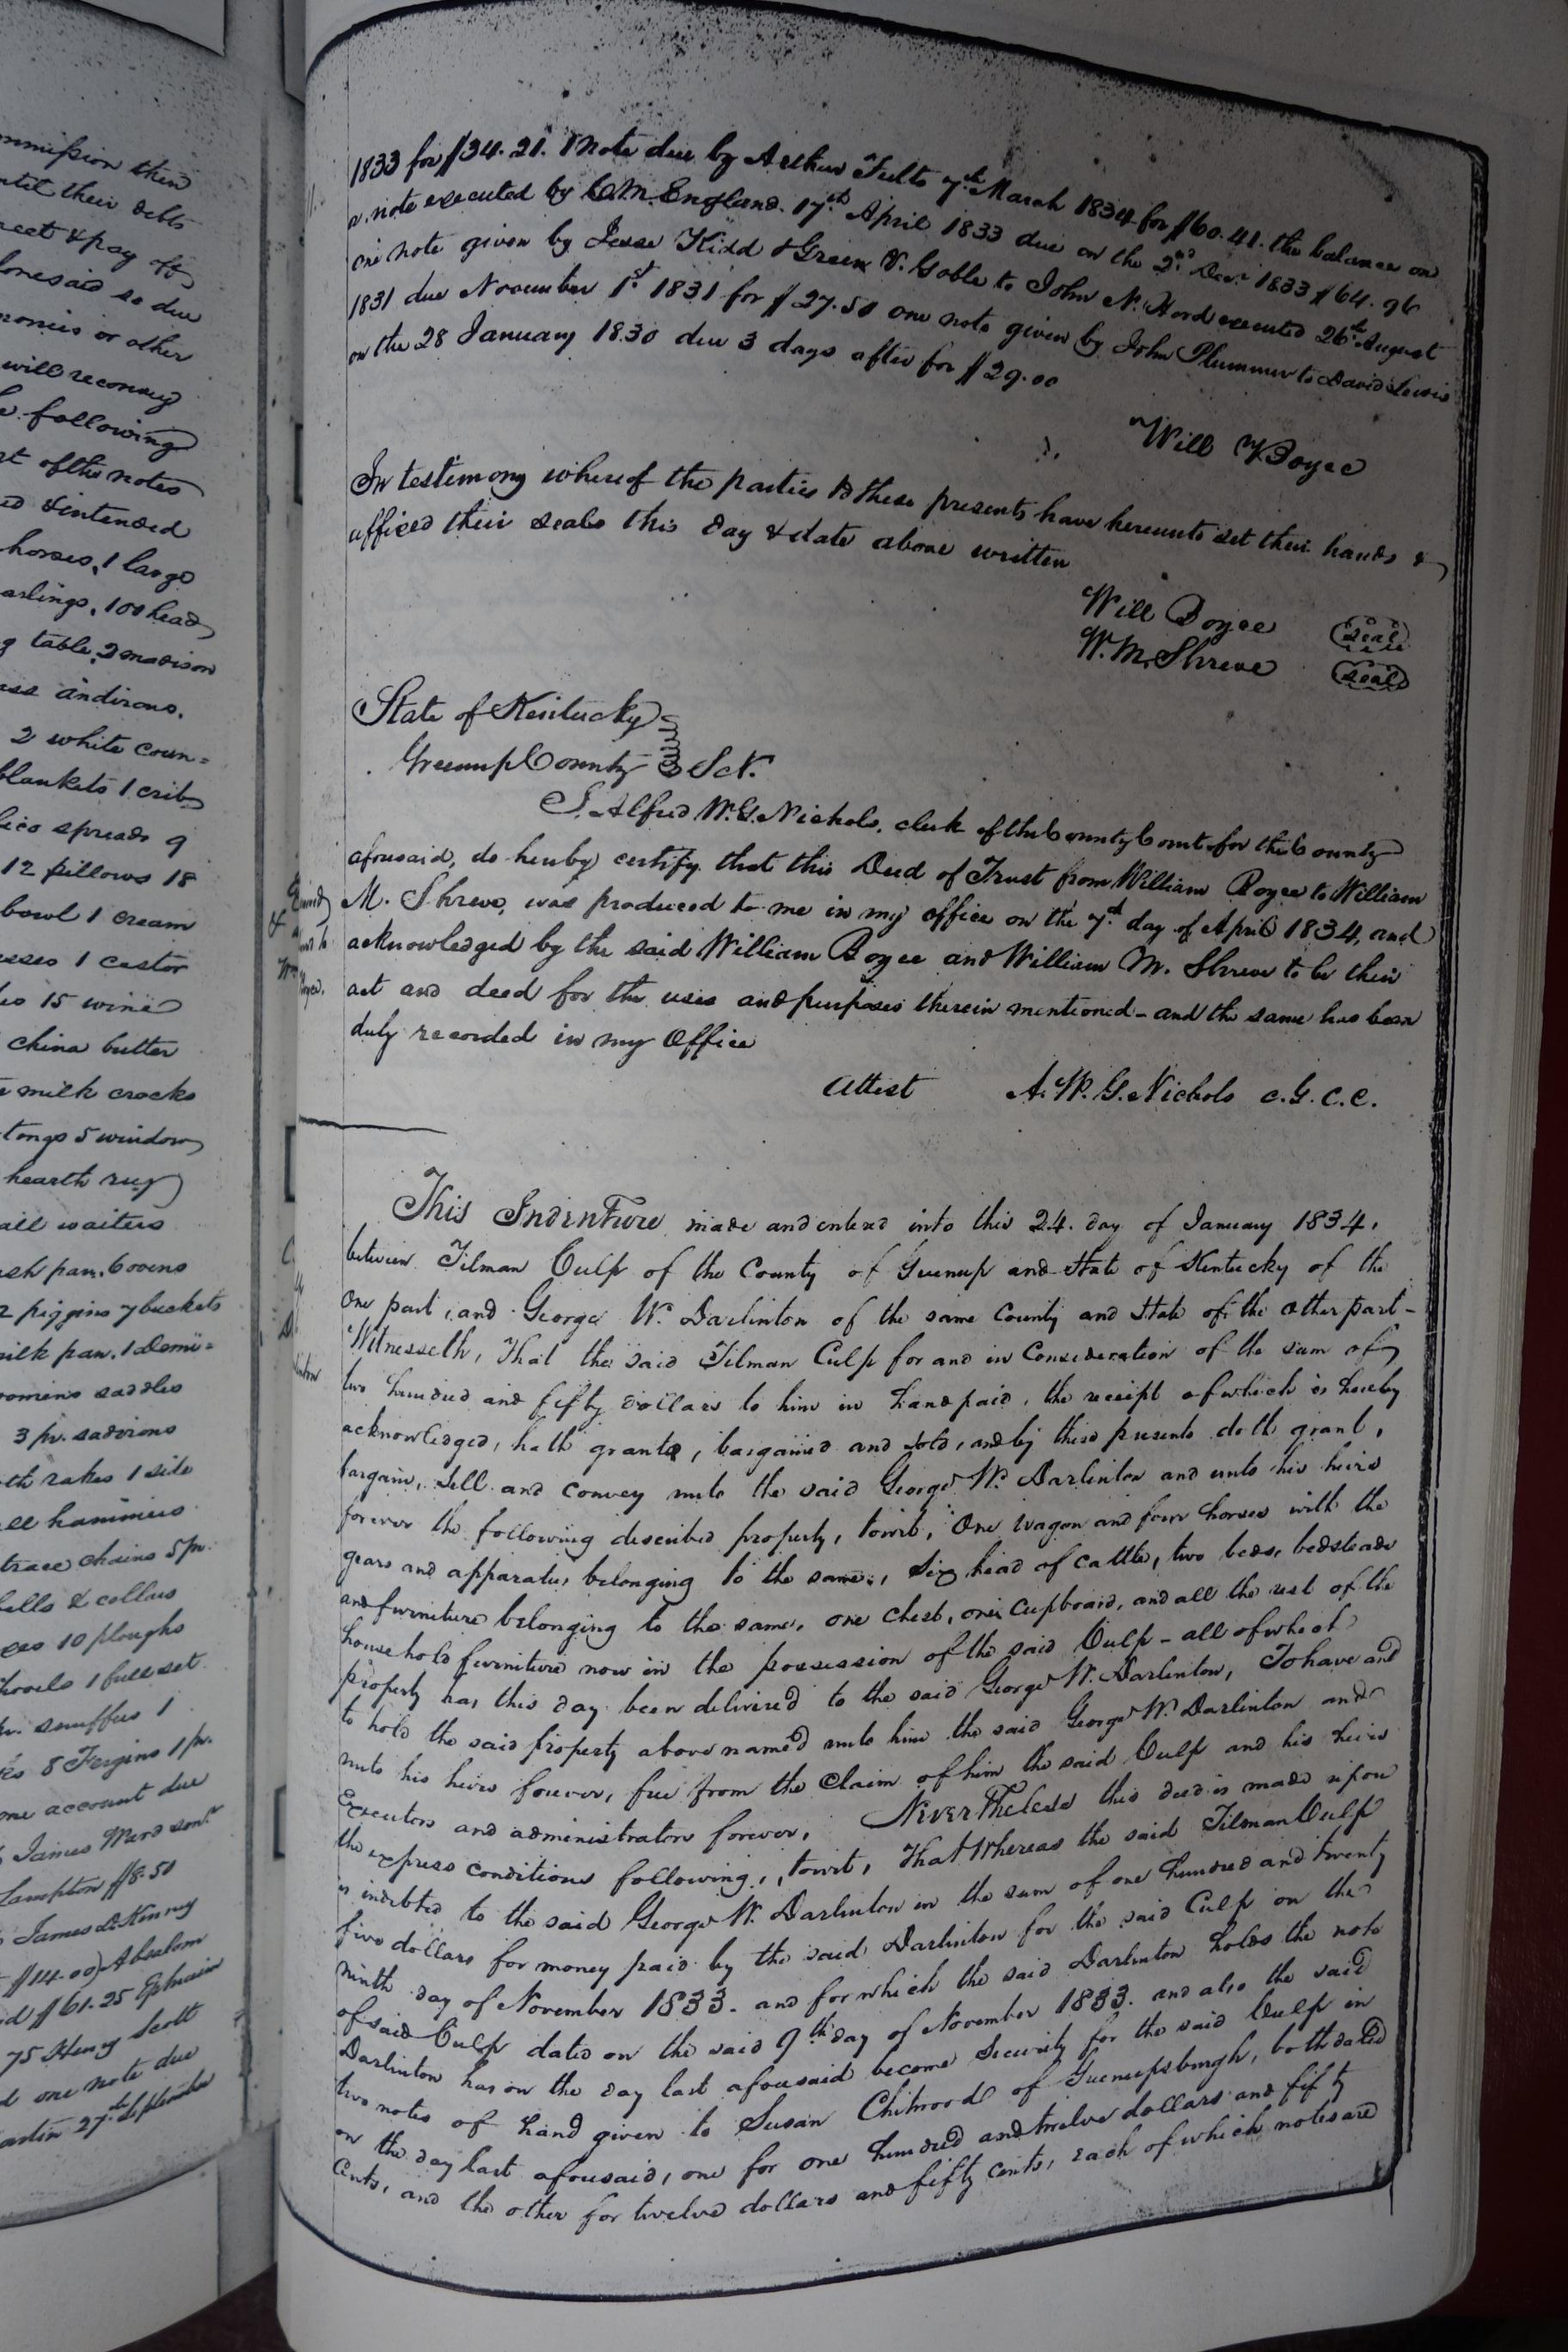 mmission then
ntil their debts
meet & pay off
foresaid so due
monies or other
will reconvey
following
rt of the notes
ed & intended
horses, 1 large
arlings, 100 head
g table, 2 madison
ass andirons.
2 white coun=
blankets 1 crib
lico spreads 9
12 pillows 18
bowl 1 cream
esses 1 castor
15 wine
china butter
milk crocks
tongs 5 window
hearth rug
all waiters
ash pan. 6 ovens
2 piggins 7 buckets
milk pan. 1 demi=
womens saddles
3 pr. sadirons
oth rakes 1 side
ell hammers
trace chains 5 pr.
bells & collars
xes 10 ploughs
hovels 1 full set
snuffers 1
8 Fergins 1 pr.
me account due
James Ward senr.
Lampton $8.50
James McKinney
$14.00) Absalom
$61.25 Ephraim
75 Henry Scott
d one note due
artin 27th September
1833 for $34.21. 1 note due by Arthur Fults 7th March 1834 for $60.41. the balance on
a note executed by C.M. England. 17th April 1833 due on the 2nd Decr 1833 $64.96
one note given by Jesse Kidd & Green V. Goble to John N. Hord executed 26th August
1831 due November 1st 1831 for $27.50 one note given by John Plummer to David Lewis
on the 28 January 1830 due 3 days after for $29.00
Will Boyce
In testimony whereof the parties to these presents have hereunto set their hands &
affixed their seals this day & date above written
Will Boyce seal
W. M. Shreve seal
State of Kentucky
Greenup County Sct.
I, Alfred W. G. Nichols, clerk of the County Court for the County
aforesaid, do hereby certify that this Deed of Trust from William Boyce to William
M. Shreve, was produced to me in my office on the 7th day of April 1834, and
acknowledged by the said William Boyce and William M. Shreve to be their
act and deed for the uses and purposes therein mentioned - and the same has been
duly recorded in my Office
Attest A. W. G. Nichols C.G.C.C.
This Indenture made and entered into this 24. day of January 1834,
between Tilman Culp of the County of Greenup and State of Kentucky of the
One part, and George W. Darlinton of the same County and State of the other part -
Witnesseth, That the said Tilman Culp for and in Consideration of the sum of
two hundred and fifty dollars to him in hand paid, the receipt of which is hereby
acknowledged, hath granted, bargained and sold, and by these presents doth grant,
bargain, sell and convey unto the said George W. Darlinton and unto his heirs
forever the following described property, towit, One wagon and four horses with the
gears and apparatus belonging to the same, Six head of cattle, two beds, bedsteads
and furniture belonging to the same, one chest, one cupboard, and all the rest of the
household furniture now in the possession of the said Culp - all of which
property has, this day been delivered to the said George W. Darlinton, To have and
to hold the said property above named unto him the said George W. Darlinton and
unto his heirs forever, free from the Claim of him the said Culp and his heirs
Executors and administrators forever, Nevertheless this deed is made upon
the express conditions following, towit, That Whereas the said Tilman Culp
is indebted to the said George W. Darlinton in the sum of one hundred and twenty
five dollars for money paid by the said Darlinton for the said Culp on the
ninth day of November 1833. and for which the said Darlinton holds the note
of said Culp dated on the said 9th day of November 1833. and also the said
Darlinton has on the day last aforesaid become Security for the said Culp in
two notes of hand given to Susan Chitwood of Greenupsburgh, both dated
on the day last aforesaid, one for one hundred and twelve dollars and fifty
Cents, and the other for twelve dollars and fifty cents, each of which notes are